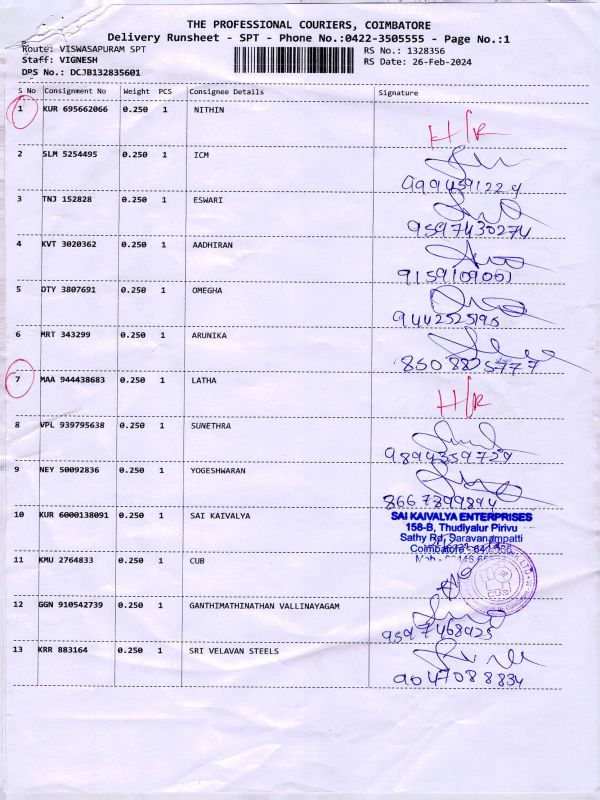 THE PROFESSIONAL COURIERS, COIMBATORE
Delivery Runsheet - SPT - Phone No.:0422-3505555 - Page No.:1
Route: VISWASAPURAM SPT
RS No.: 1328356
Staff: VIGNESH
RS Date: 26-Feb-2024
DPS No.: DCJB132835601
S No Consignment No Weight PCS Consignee Details Signature
1 KUR 695662066 0.250 1 NITHIN
H/R
2 SLM 5254495 0.250 1 ICM
9994591229
3 TNJ 152828 0.250 1 ESWARI
9597430274
4 KVT 3020362 0.250 1 AADHIRAN
9159109061
5 OTY 3807691 0.250 1 OMEGHA
9442525195
6 MRT 343299 0.250 1 ARUNIKA
8508825777
7 MAA 944438683 0.250 1 LATHA
H/R
8 VPL 939795638 0.250 1 SUNETHRA
9894359729
9 NEY 50092836 0.250 1 YOGESHWARAN
8667899894
10 KUR 6000138091 0.250 1 SAI KAIVALYA
SAI KAIVALYA ENTERPRISES
158-B, Thudiyalur Pirivu
Sathy Rd, Saravanampatti
Coimbatore
11 KMU 2764833 0.250 1 CUB
12 GGN 910542739 0.250 1 GANTHIMATHINATHAN VALLINAYAGAM
9597468925
13 KRR 883164 0.250 1 SRI VELAVAN STEELS
9047088834